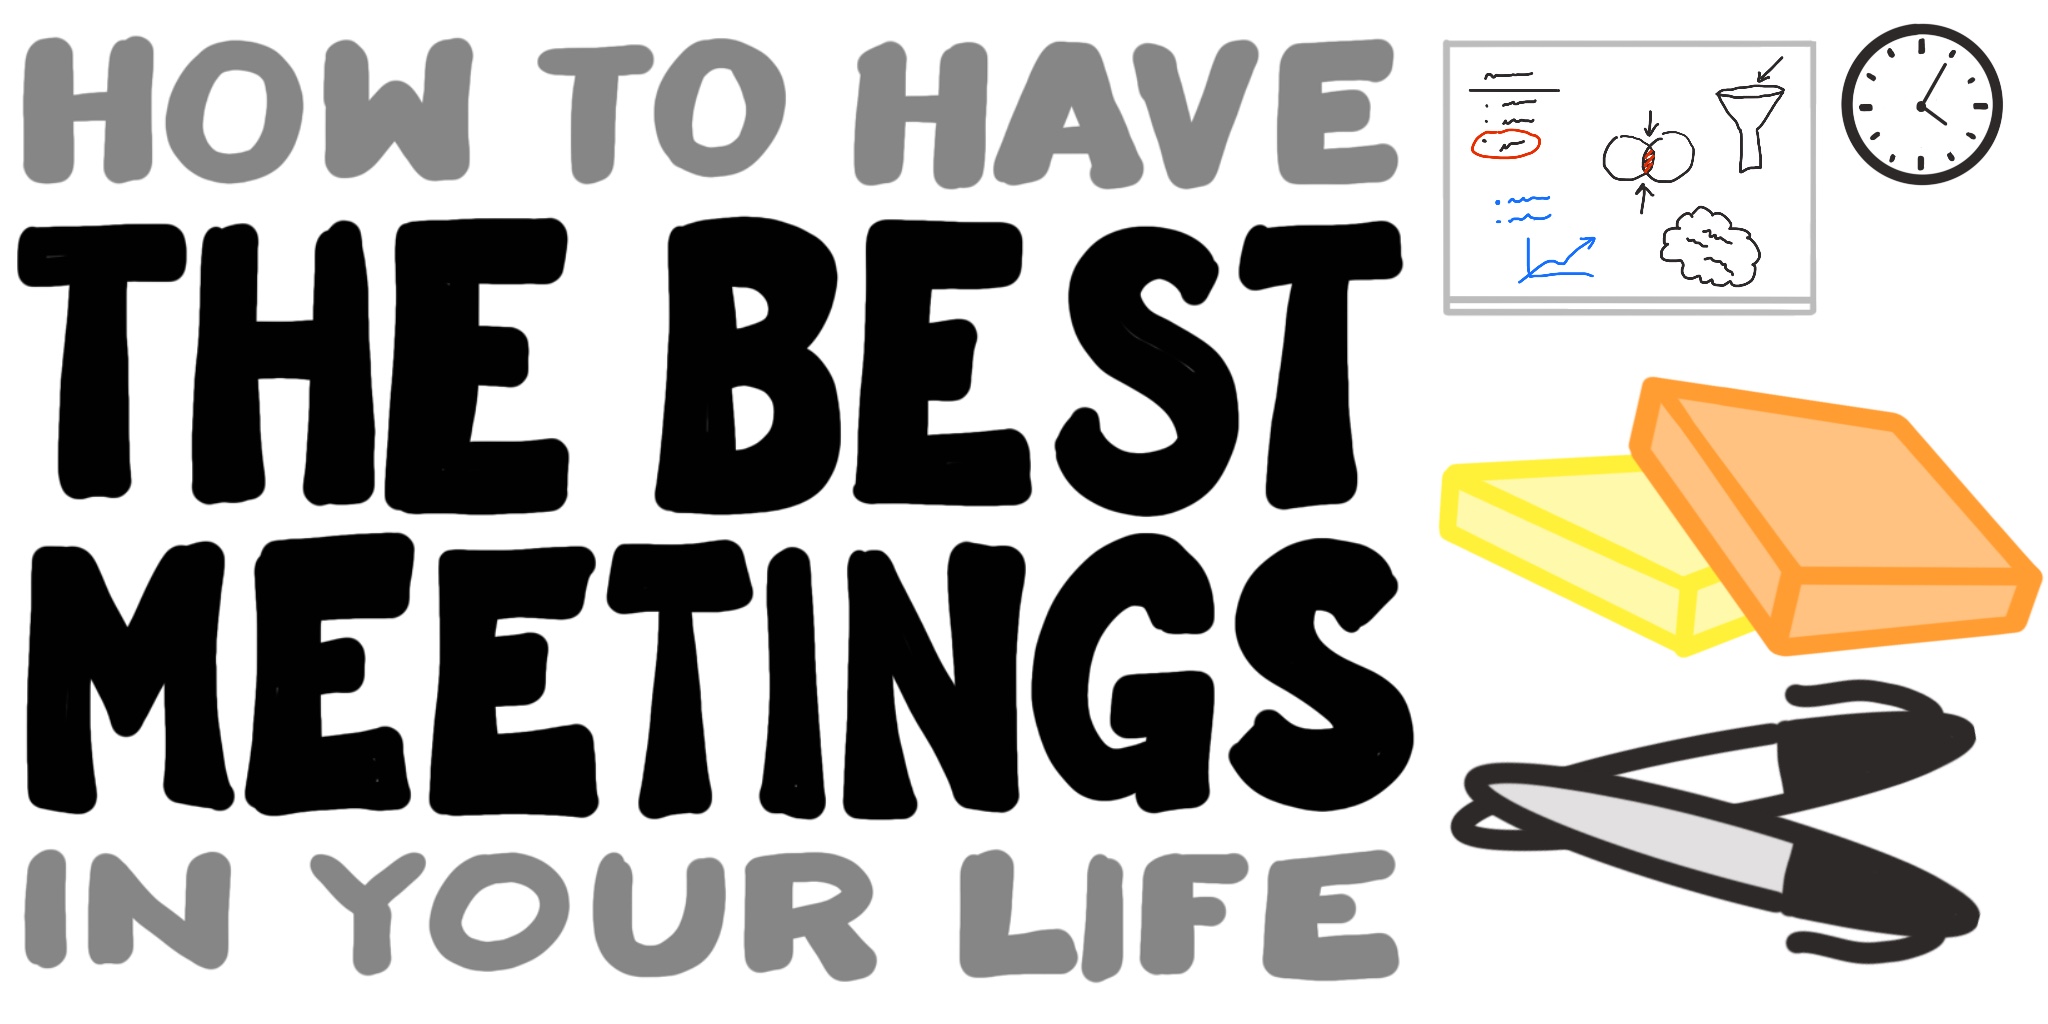 HOW TO HAVE
THE BEST
MEETINGS
IN YOUR LIFE